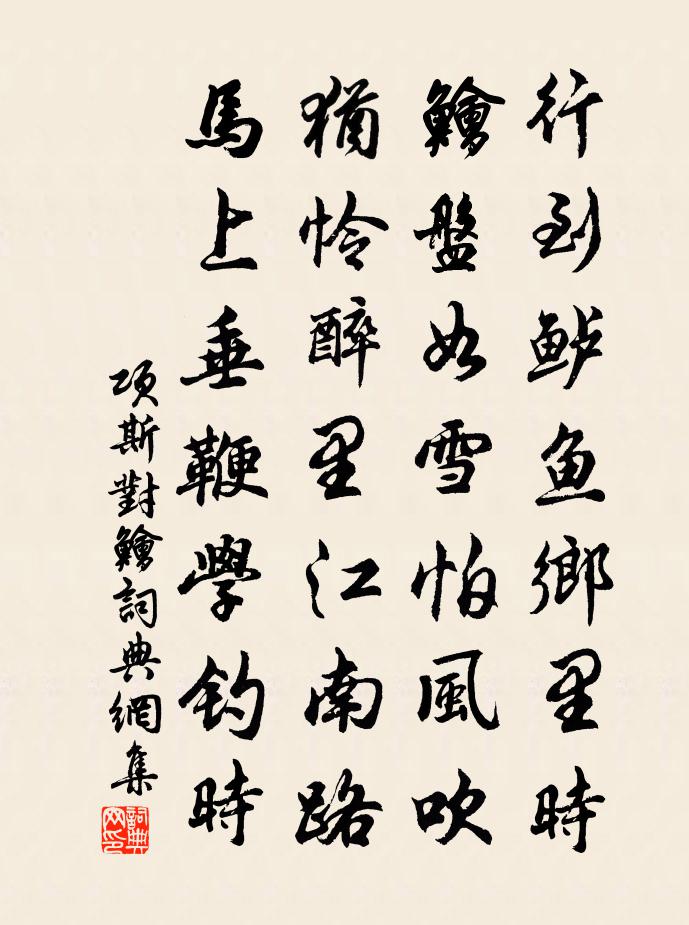 行到鲈鱼鄉里時
鱠盤如雪怕風吹
猶怜醉里江南路
馬上垂鞭學釣時
項斯對鱠詞典網集
詞典
网印